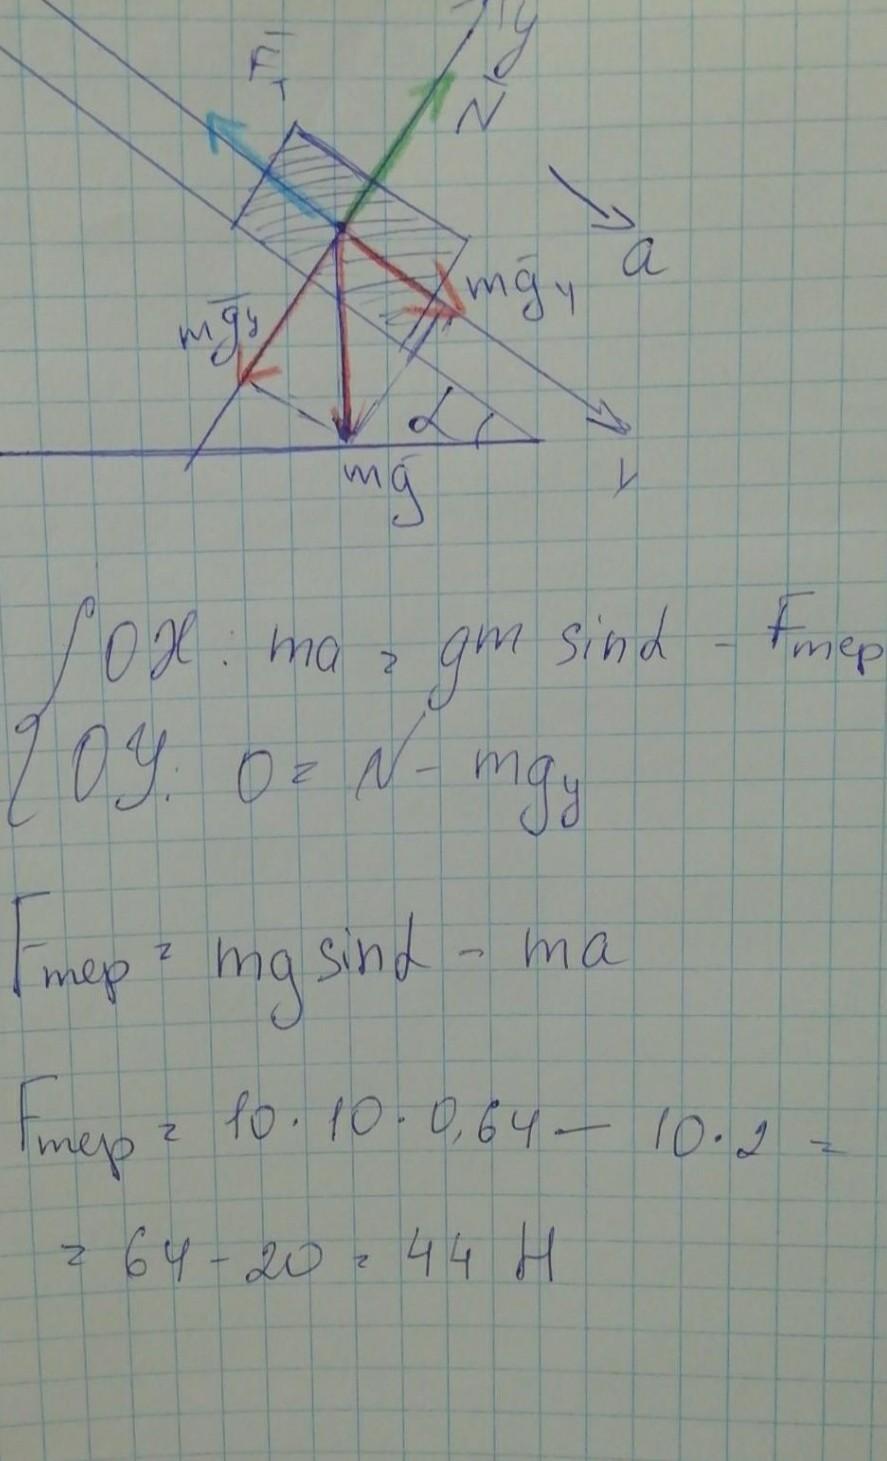 y
F̅т
N̅
a
mg̅у
mg̅y
α
mg̅
OX: ma = gm sinα - Fтер
OY: O = N - mgy
Fтер = mg sinα - ma
Fтер = 10 · 10 · 0,64 — 10 · 2 =
= 64 - 20 = 44 Н